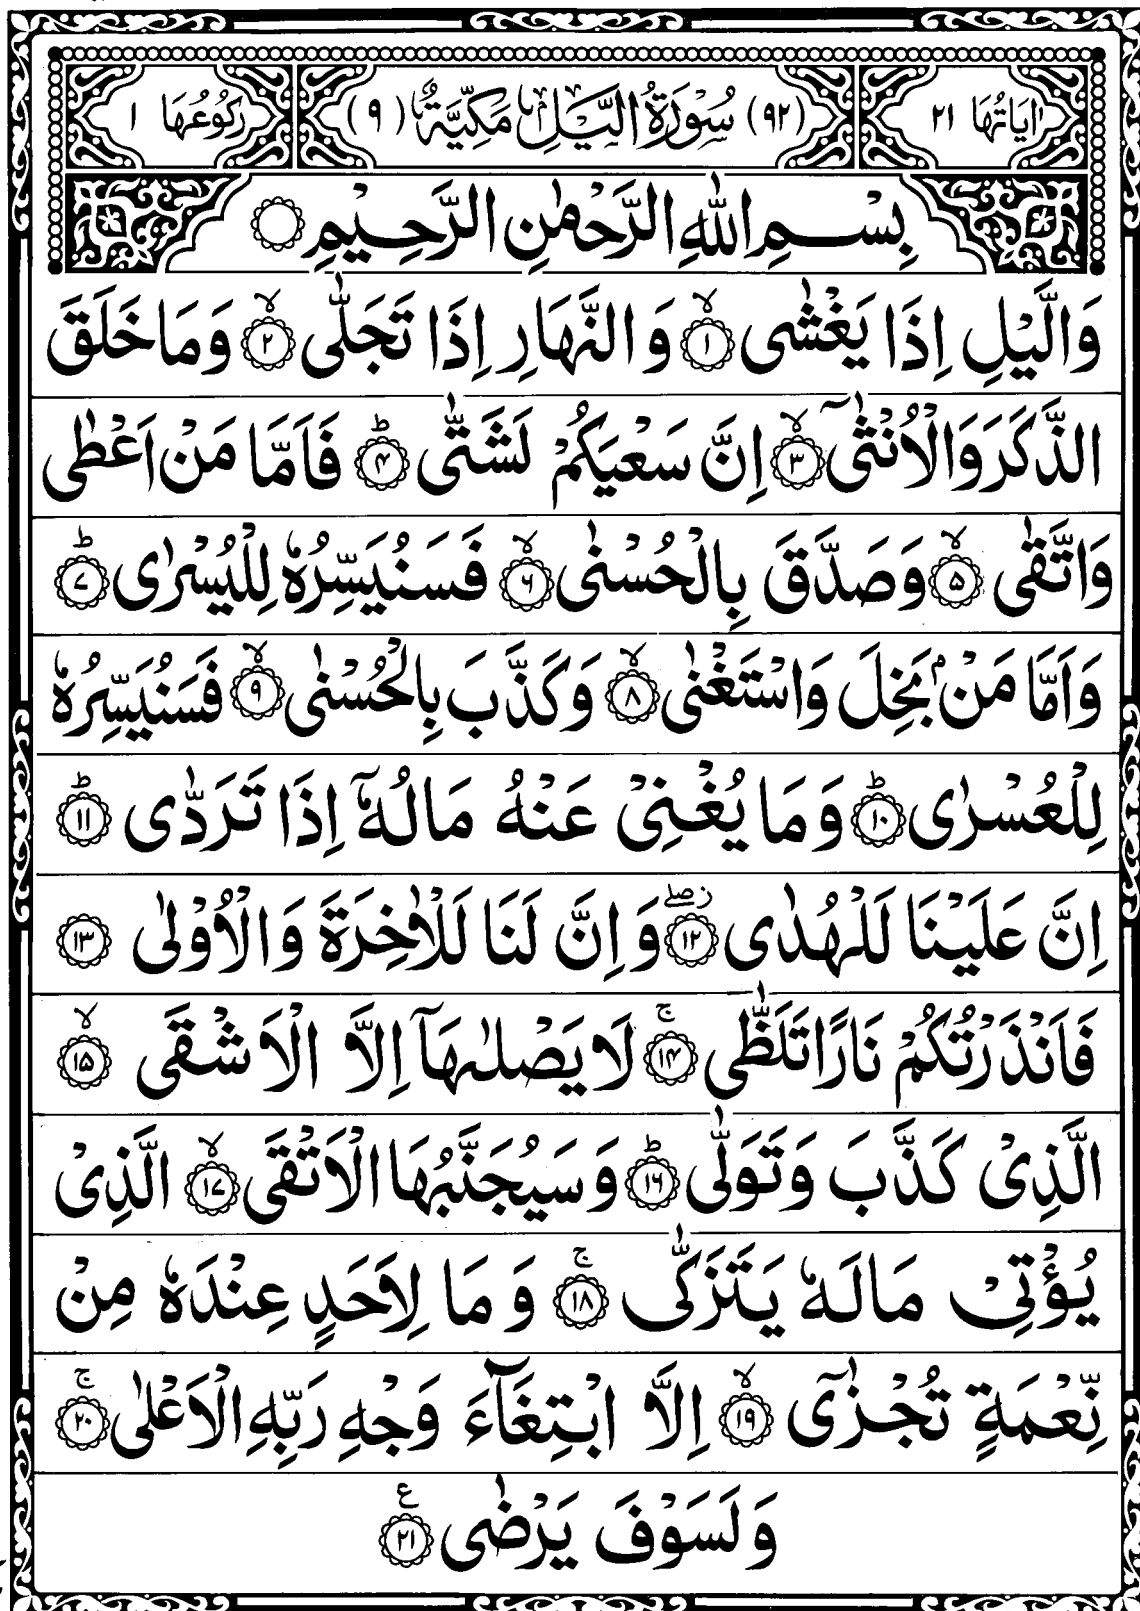 اٰيَاتُهَا ٢١ (٩٢) سُوْرَةُ الَّيْلِ مَكِّيَّةٌ (٩) رُكُوْعُهَا ١
بِسْمِ اللّٰهِ الرَّحْمٰنِ الرَّحِيْمِ
وَالَّيْلِ اِذَا يَغْشٰى ۙ﴿١﴾ وَالنَّهَارِ اِذَا تَجَلّٰى ۙ﴿٢﴾ وَمَا خَلَقَ
الذَّكَرَ وَالْاُنْثٰٓى ۙ﴿٣﴾ اِنَّ سَعْيَكُمْ لَشَتّٰى ؕ﴿۴﴾ فَاَمَّا مَنْ اَعْطٰى
وَاتَّقٰى ۙ﴿۵﴾ وَصَدَّقَ بِالْحُسْنٰى ۙ﴿۶﴾ فَسَنُيَسِّرُهٗ لِلْيُسْرٰى ؕ﴿۷﴾
وَاَمَّا مَنْۢ بَخِلَ وَاسْتَغْنٰى ۙ﴿۸﴾ وَكَذَّبَ بِالْحُسْنٰى ۙ﴿۹﴾ فَسَنُيَسِّرُهٗ
لِلْعُسْرٰى ؕ﴿۱۰﴾ وَمَا يُغْنِىْ عَنْهُ مَالُهٗٓ اِذَا تَرَدّٰى ؕ﴿۱۱﴾
اِنَّ عَلَيْنَا لَلْهُدٰى ۖ﴿۱۲﴾ وَاِنَّ لَنَا لَلْاٰخِرَةَ وَالْاُوْلٰى ﴿۱۳﴾
فَاَنْذَرْتُكُمْ نَارًا تَلَظّٰى ۚ﴿۱۴﴾ لَا يَصْلٰىهَآ اِلَّا الْاَشْقَى ۙ﴿۱۵﴾
الَّذِىْ كَذَّبَ وَتَوَلّٰى ؕ﴿۱۶﴾ وَسَيُجَنَّبُهَا الْاَتْقَى ۙ﴿۱۷﴾ الَّذِىْ
يُؤْتِىْ مَالَهٗ يَتَزَكّٰى ۚ﴿۱۸﴾ وَمَا لِاَحَدٍ عِنْدَهٗ مِنْ
نِّعْمَةٍ تُجْزٰٓى ۙ﴿۱۹﴾ اِلَّا ابْتِغَآءَ وَجْهِ رَبِّهِ الْاَعْلٰى ۚ﴿۲۰﴾
وَلَسَوْفَ يَرْضٰى ﴿۲۱﴾ ع